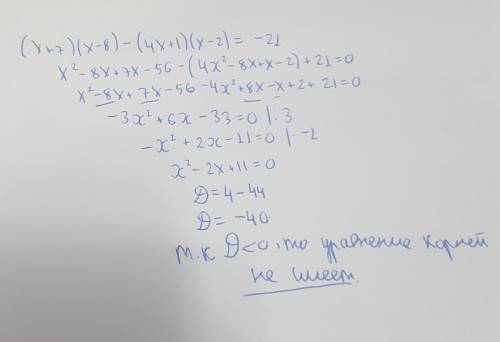 (x+7)(x-8)-(4x+1)(x-2)= -21
x²-8x+7x-56-(4x²-8x+x-2)+21=0
x²-8x+7x-56-4x²+8x-x+2+21=0
-3x²+6x-33=0 |:3
-x²+2x-11=0 |·-2
x²-2x+11=0
D=4-44
D= -40
т.к D<0, то уравнение корней
не имеет.